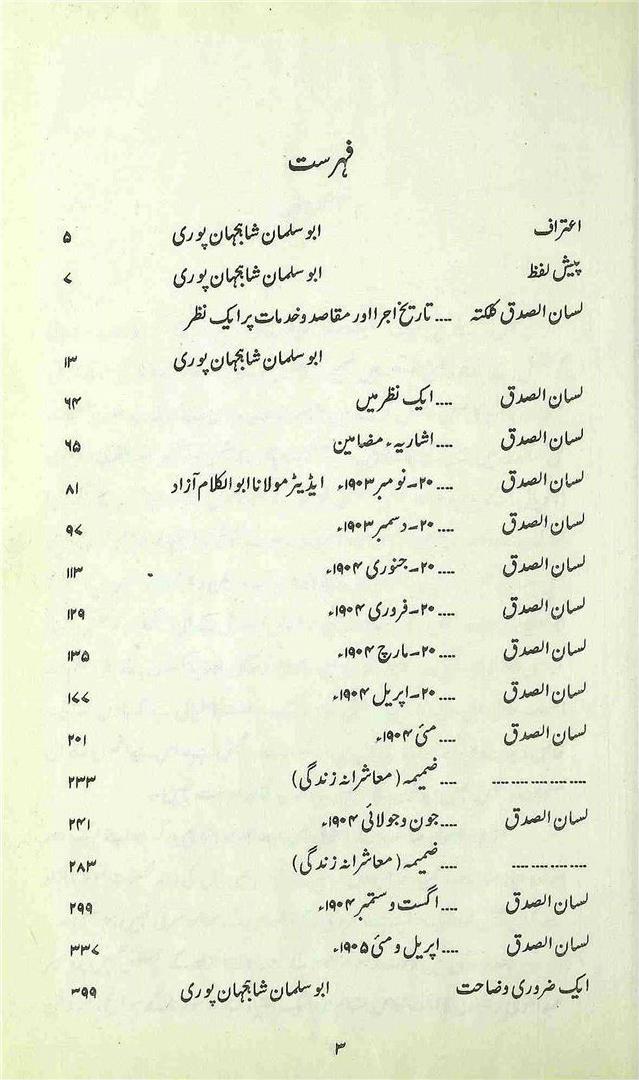 فہرست
اعتراف ابو سلمان شاہجہان پوری ۵
پیش لفظ ابو سلمان شاہجہان پوری ۷
لسان الصدق کلکتہ .... تاریخ اجرا اور مقاصد و خدمات پر ایک نظر
ابو سلمان شاہجہان پوری ۱۳
لسان الصدق .... ایک نظر میں ۶۴
لسان الصدق .... اشاریہء مضامین ۶۵
لسان الصدق .... ۲۰-نومبر ۱۹۰۳ء ایڈیٹر مولانا ابو الکلام آزاد ۸۱
لسان الصدق .... ۲۰-دسمبر ۱۹۰۳ء ۹۷
لسان الصدق .... ۲۰-جنوری ۱۹۰۴ء ۱۱۳
لسان الصدق .... ۲۰-فروری ۱۹۰۴ء ۱۲۹
لسان الصدق .... ۲۰-مارچ ۱۹۰۴ء ۱۳۵
لسان الصدق .... ۲۰-اپریل ۱۹۰۴ء ۱۷۷
لسان الصدق .... مئی ۱۹۰۴ء ۲۰۱
.................. .... ضمیمہ (معاشرانہ زندگی) ۲۳۳
لسان الصدق .... جون و جولائی ۱۹۰۴ء ۲۴۱
.................. .... ضمیمہ (معاشرانہ زندگی) ۲۸۳
لسان الصدق .... اگست و ستمبر ۱۹۰۴ء ۲۹۹
لسان الصدق .... اپریل و مئی ۱۹۰۵ء ۳۳۷
ایک ضروری وضاحت ابو سلمان شاہجہان پوری ۳۹۹
۳